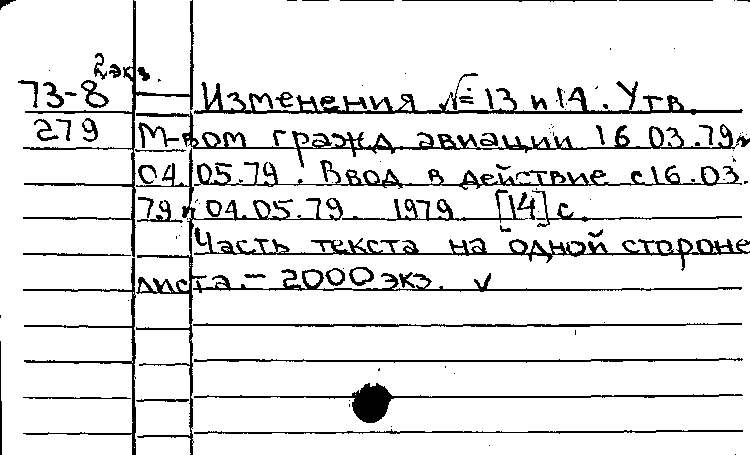 2 экз.
73-8 Изменения № 13 и 14. Утв.
279 М-вом гражд. авиации 16.03.79 и
04.05.79. Ввод. в действие с 16.03.
79 и 04.05.79. 1979. [14] с.
Часть текста на одной стороне
листа. – 2000 экз. ✓